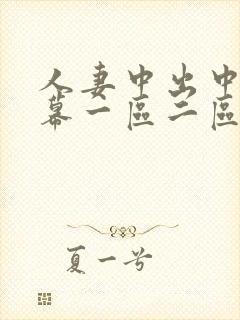 人妻中出中
幕一區二區
夏一兮